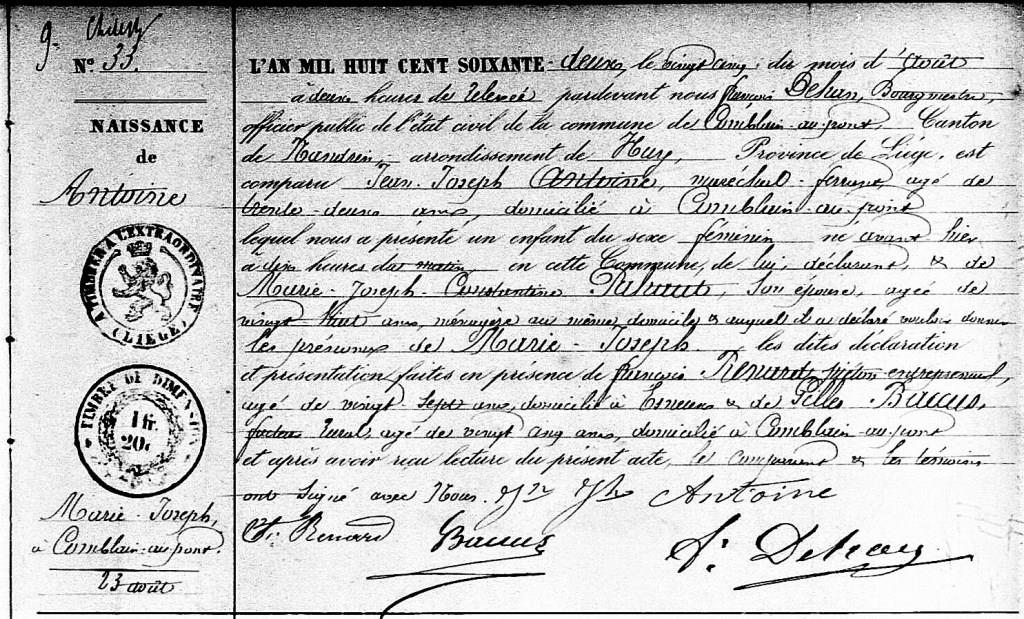 9.
N° 33.
NAISSANCE
de
Antoine
TIMBRE A L'EXTRAORDINAIRE
(LIÈGE)
TIMBRE DE DIMENSION
1 fr.
20c
Marie-Joseph,
à Comblain-au-pont.
23 août
L'AN MIL HUIT CENT SOIXANTE-deux, le vingt cinq, du mois d'août
à deux heures de relevée pardevant nous françois Bourgmestre,
officier public de l'état civil de la commune de Comblain-au-pont, Canton
de Nandrin, arrondissement de Huy, Province de Liège, est
comparu Jean-Joseph Antoine, maréchal-ferrant, agé de
trente-deux ans, domicilié à Comblain-au-pont
lequel nous a présenté un enfant du sexe féminin né avant hier
à dix heures du matin, en cette Commune, de lui, déclarant, & de
Marie-Joseph-Constantine son épouse, agée de
vingt huit ans, ménagère au même domicile & auquel il a déclaré vouloir donner
les prénoms de Marie-Joseph. les dites déclaration
et présentation faites en présence de françois Renard, entrepreneur,
agé de vingt-sept ans, domicilié à Esneux & de Gilles Baccus,
facteur rural, agé de vingt cinq ans, domicilié à Comblain-au-pont
et après avoir reçu lecture du présent acte, le comparant & les témoins
ont signé avec Nous. Jn Jh Antoine
Renard Baccus